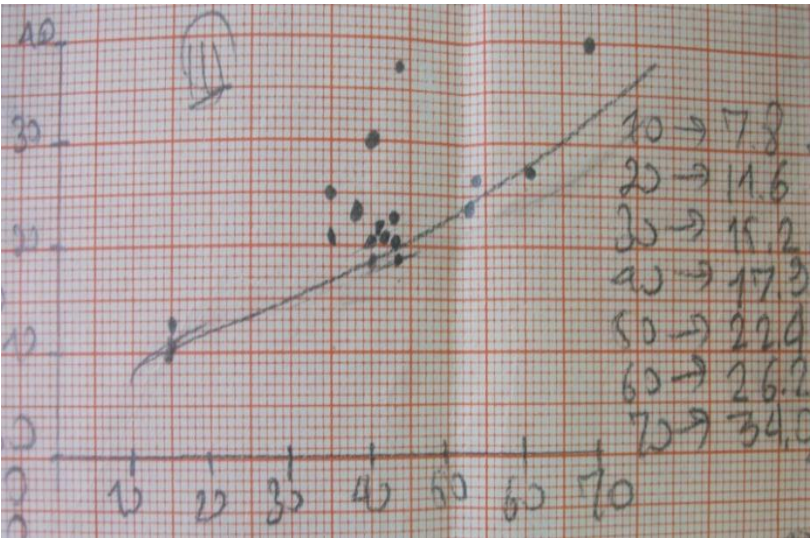 40
III
30
20
10
0
10 20 30 40 50 60 70
10 → 7.8
20 → 11.6
30 → 15.2
40 → 17.3
50 → 22.4
60 → 26.2
70 → 34.